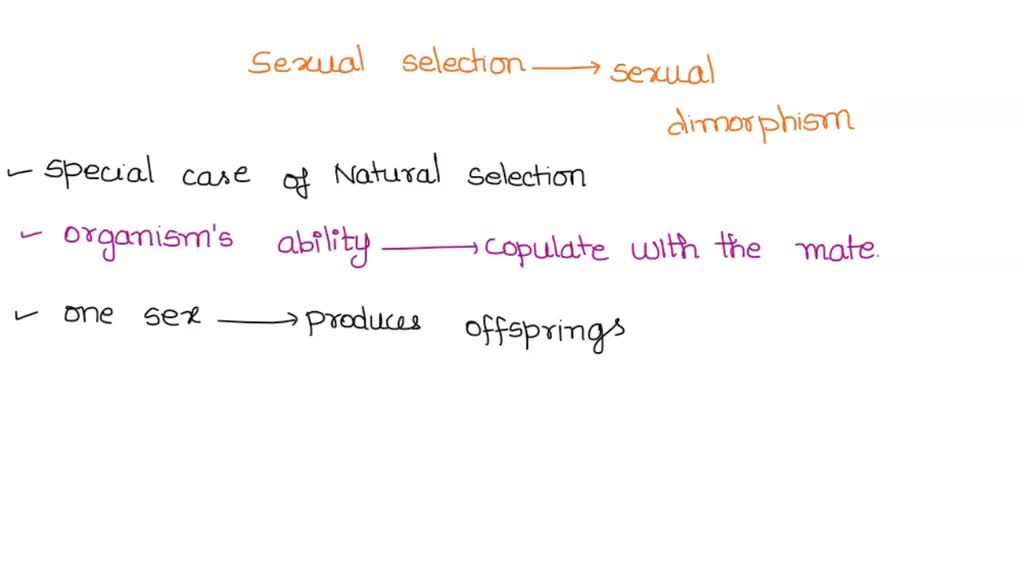 Sexual selection → sexual
dimorphism
✓ special case of Natural selection
✓ organism's ability → copulate with the mate.
✓ one sex → produces offsprings